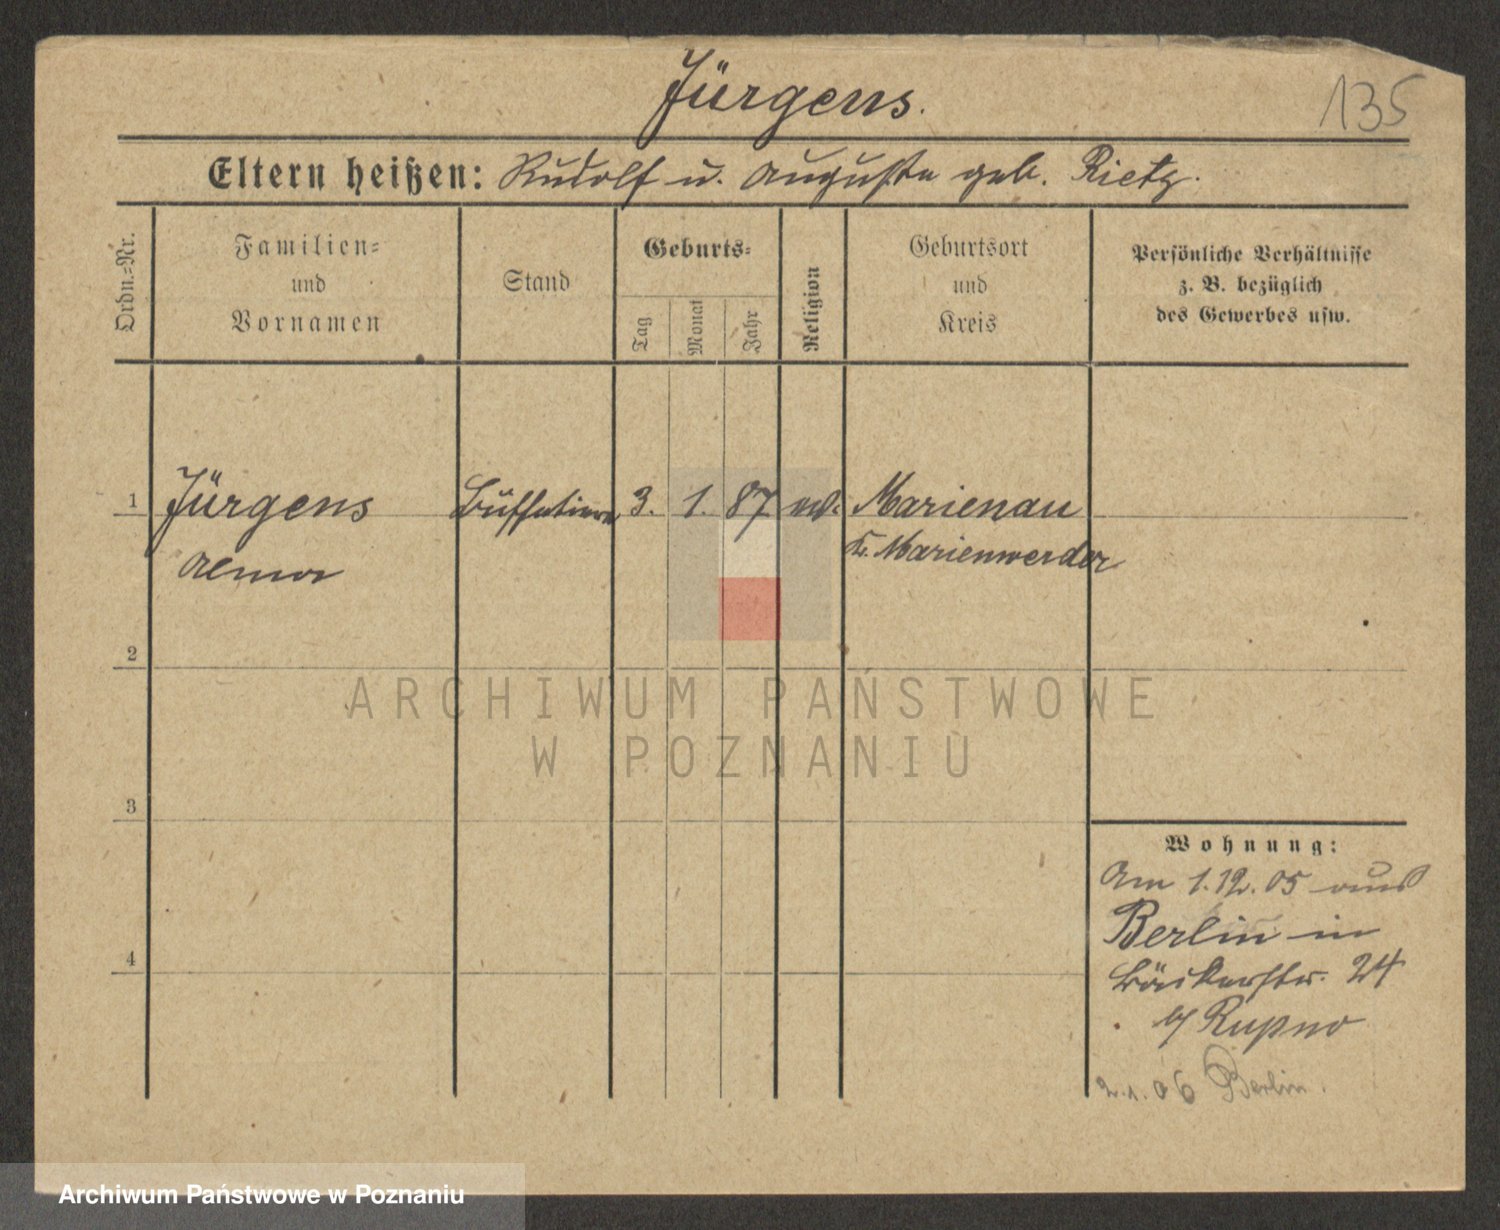 Jürgens.
135
Eltern heißen: Rudolf u. Auguste geb. Rietz.
Ordn.=Nr.
Familien=
und
Vornamen
Stand
Geburts=
Tag
Monat
Jahr
Religion
Geburtsort
und
Kreis
Persönliche Verhältnisse
z. B. bezüglich
des Gewerbes usw.
1 Jürgens Büffetiere 3. 1. 87 ev. Marienau
Alma K. Marienwerder
2
ARCHIWUM PAŃSTWOWE
W POZNANIU
3
Wohnung:
Am 1.12.05 aus
Berlin in
4
Bäckerstr. 24
b/
2.1.06 Berlin.
Archiwum Państwowe w Poznaniu